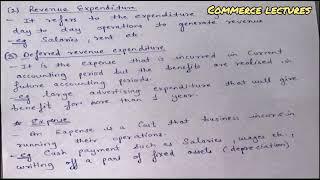 COMMERCE LECTURES
(2) Revenue Expenditure
- It refers to the expenditure
day to day operations to generate revenue
- eg Salaries, rent etc.
(3) Deferred revenue expenditure
- It is the expense that is incurred in current
accounting period but the benefits are realised in
future accounting period.
- eg large advertising expenditure that will give
benefit for more than 1 year.
* Expense
- An Expense is a Cost that business incure in
running their operations.
- eg Cash payment such as Salaries wages etc,
writing off a part of fixed assets (depreciation)